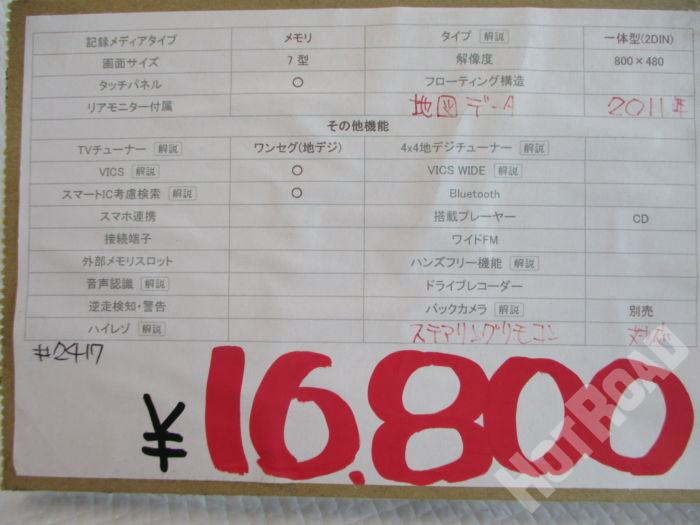 記録メディアタイプ メモリ タイプ 解説 一体型(2DIN)
画面サイズ 7 型 解像度 800 × 480
タッチパネル ○ フローティング構造
リアモニター付属 地図データ 2011年
その他機能
TVチューナー 解説 ワンセグ(地デジ) 4x4地デジチューナー 解説
VICS 解説 ○ VICS WIDE 解説
スマートIC考慮検索 解説 ○ Bluetooth
スマホ連携 搭載プレーヤー CD
接続端子 ワイドFM
外部メモリスロット ハンズフリー機能 解説
音声認識 解説 ドライブレコーダー
逆走検知・警告 バックカメラ 解説 別売
ハイレゾ 解説 ステアリングリモコン 対応
#2417
¥16,800
HOTROAD